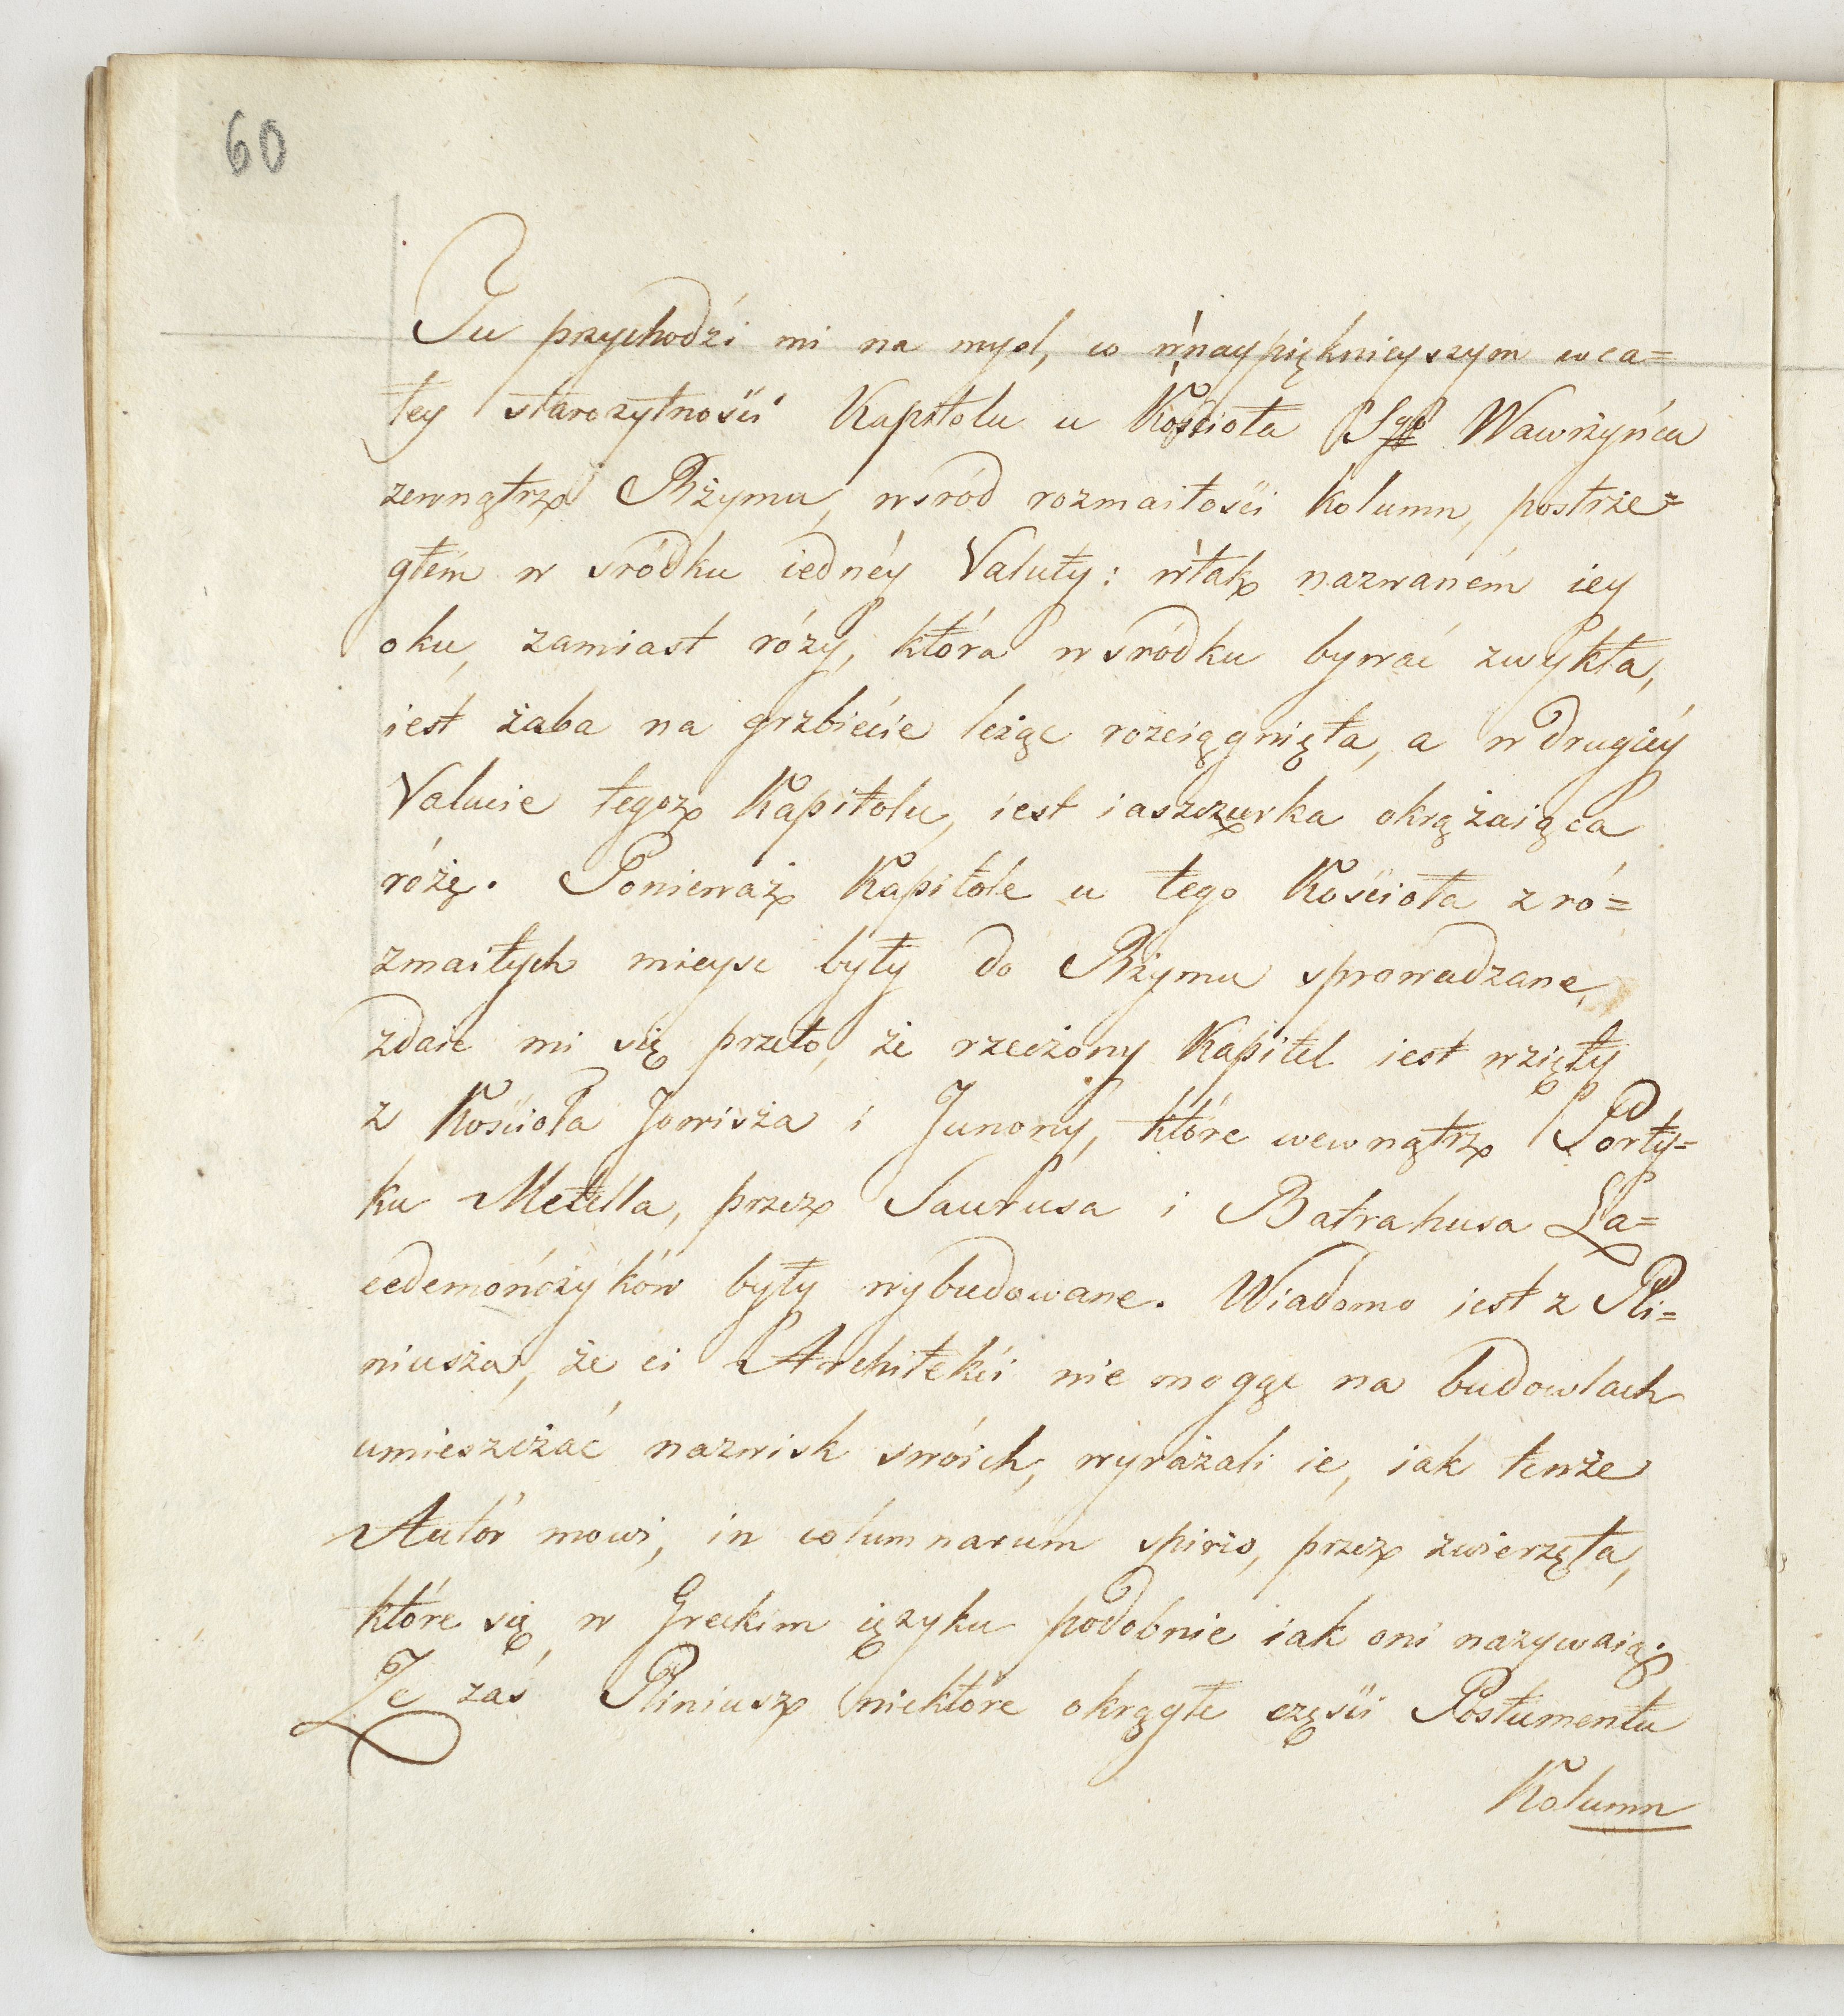 60
Tu przychodźi mi na mysl, co w naypięknieyszym wca=
łey starożytnośći Kapitolu u Kościoła Sgo Wawrżyńca
zewnątrz Rżymu, wsród rozmaitośći kolumn, postrze=
głem w sródku iednéy Valuty: w tak nazwaném iey
oku, zamiast róży, która wsródku bywać zwykła,
iest żaba na grzbiećie leżąc rozciągnięta, a w drugiéy
Valucie tegoz Kapitolu, iest iaszczurka okrążaiąca
różę. Ponieważ Kapitole u tego Kościoła z ró=
zmaitych mieysc były do Rżymu sprowadzane,
zdaie mi się przeto, że rzeczony Kapitel iest wzięty
z Kościoła Jowisza i Junony, które wewnątrz Porty=
ku Metella, przez Saurusa i Batrahusa La=
cedemończyków były wybudowane. Wiadomo iest z Pli=
niusza, że ci Architekći nie mogąc na budowlach
umieszczać nazwisk swóich, wyrażali ie, iak tenże
Autór mowi, in columnarum spiris, przez zwierzęta,
które się w Greckim ięzyku podobnie iak oni nazywaią.
Ze zaś Pliniusz niektóre okrągłe częśći Postumentu
Kolumn